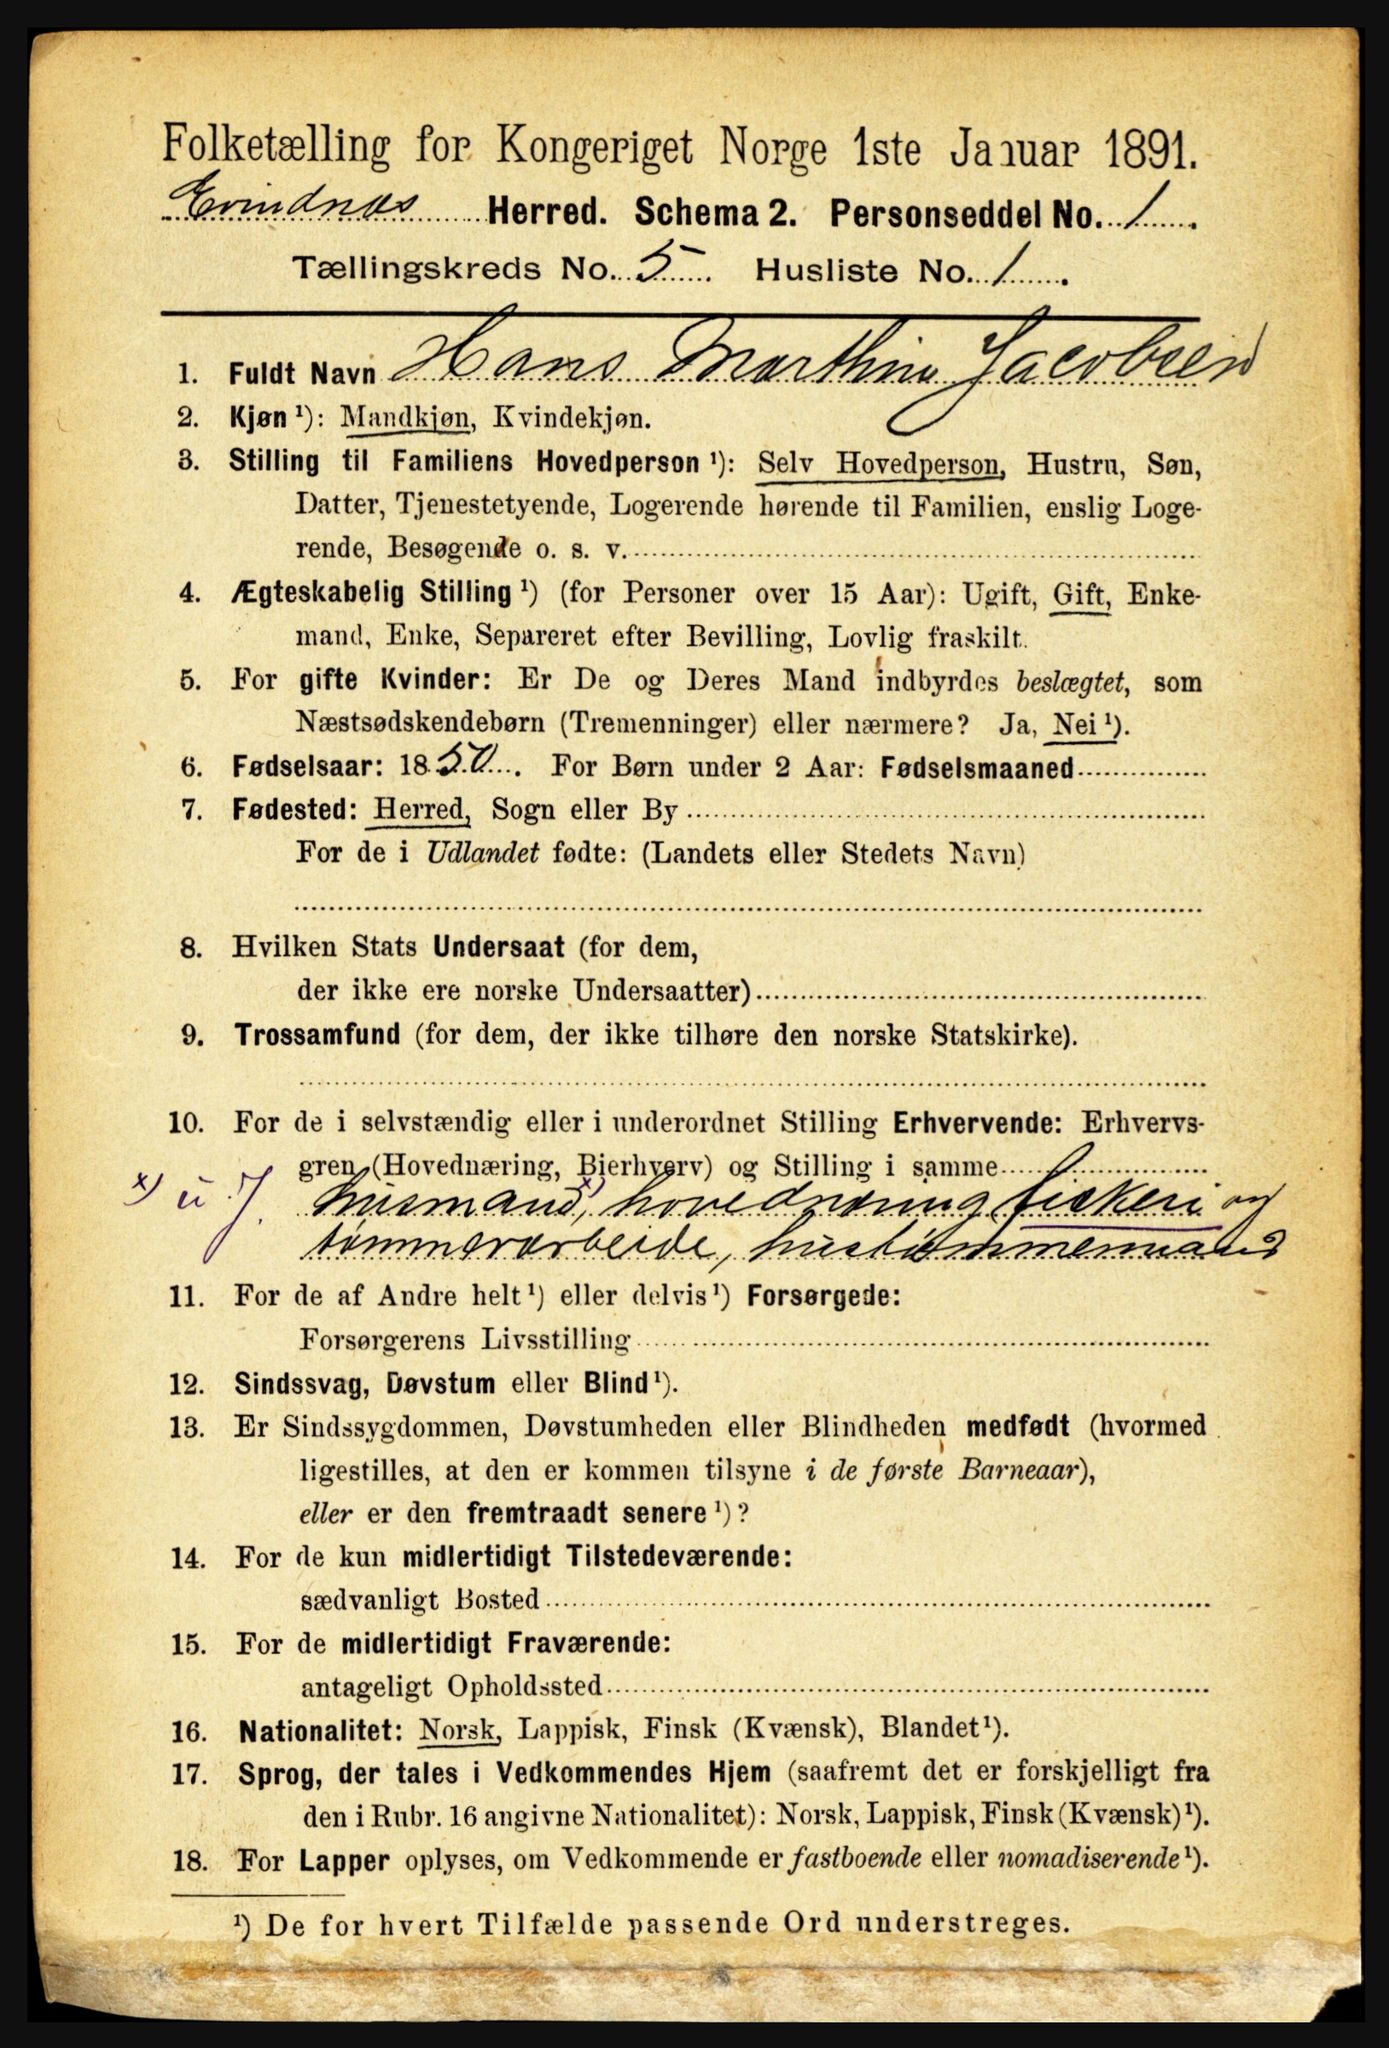 Folketælling for Kongeriget Norge 1ste Januar 1891.
Evindnæs Herred. Schema 2. Personseddel No. 1
Tællingskreds No. 5 Husliste No. 1
1. Fuldt Navn Hans Marthin Jacobsen
2. Kjøn ¹): Mandkjøn, Kvindekjøn.
3. Stilling til Familiens Hovedperson ¹): Selv Hovedperson, Hustru, Søn,
Datter, Tjenestetyende, Logerende hørende til Familien, enslig Loge-
rende, Besøgende o. s. v.
4. Ægteskabelig Stilling ¹) (for Personer over 15 Aar): Ugift, Gift, Enke-
mand, Enke, Separeret efter Bevilling, Lovlig fraskilt.
5. For gifte Kvinder: Er De og Deres Mand indbyrdes beslægtet, som
Næstsødskendebørn (Tremenninger) eller nærmere? Ja, Nei ¹).
6. Fødselsaar: 1850. For Børn under 2 Aar: Fødselsmaaned
7. Fødested: Herred, Sogn eller By
For de i Udlandet fødte: (Landets eller Stedets Navn)
8. Hvilken Stats Undersaat (for dem,
der ikke ere norske Undersaatter)
9. Trossamfund (for dem, der ikke tilhøre den norske Statskirke).
10. For de i selvstændig eller i underordnet Stilling Erhvervende: Erhvervs-
gren (Hovednæring, Bierhverv) og Stilling i samme
x) u. J. husmand x), hovednæring fiskeri og
tømmerarbeide, hustømmermand
11. For de af Andre helt ¹) eller delvis ¹) Forsørgede:
Forsørgerens Livsstilling
12. Sindssvag, Døvstum eller Blind ¹).
13. Er Sindssygdommen, Døvstumheden eller Blindheden medfødt (hvormed
ligestilles, at den er kommen tilsyne i de første Barneaar),
eller er den fremtraadt senere ¹)?
14. For de kun midlertidigt Tilstedeværende:
sædvanligt Bosted
15. For de midlertidigt Fraværende:
antageligt Opholdssted
16. Nationalitet: Norsk, Lappisk, Finsk (Kvænsk), Blandet ¹).
17. Sprog, der tales i Vedkommendes Hjem (saafremt det er forskjelligt fra
den i Rubr. 16 angivne Nationalitet): Norsk, Lappisk, Finsk (Kvænsk) ¹).
18. For Lapper oplyses, om Vedkommende er fastboende eller nomadiserende ¹).
¹) De for hvert Tilfælde passende Ord understreges.